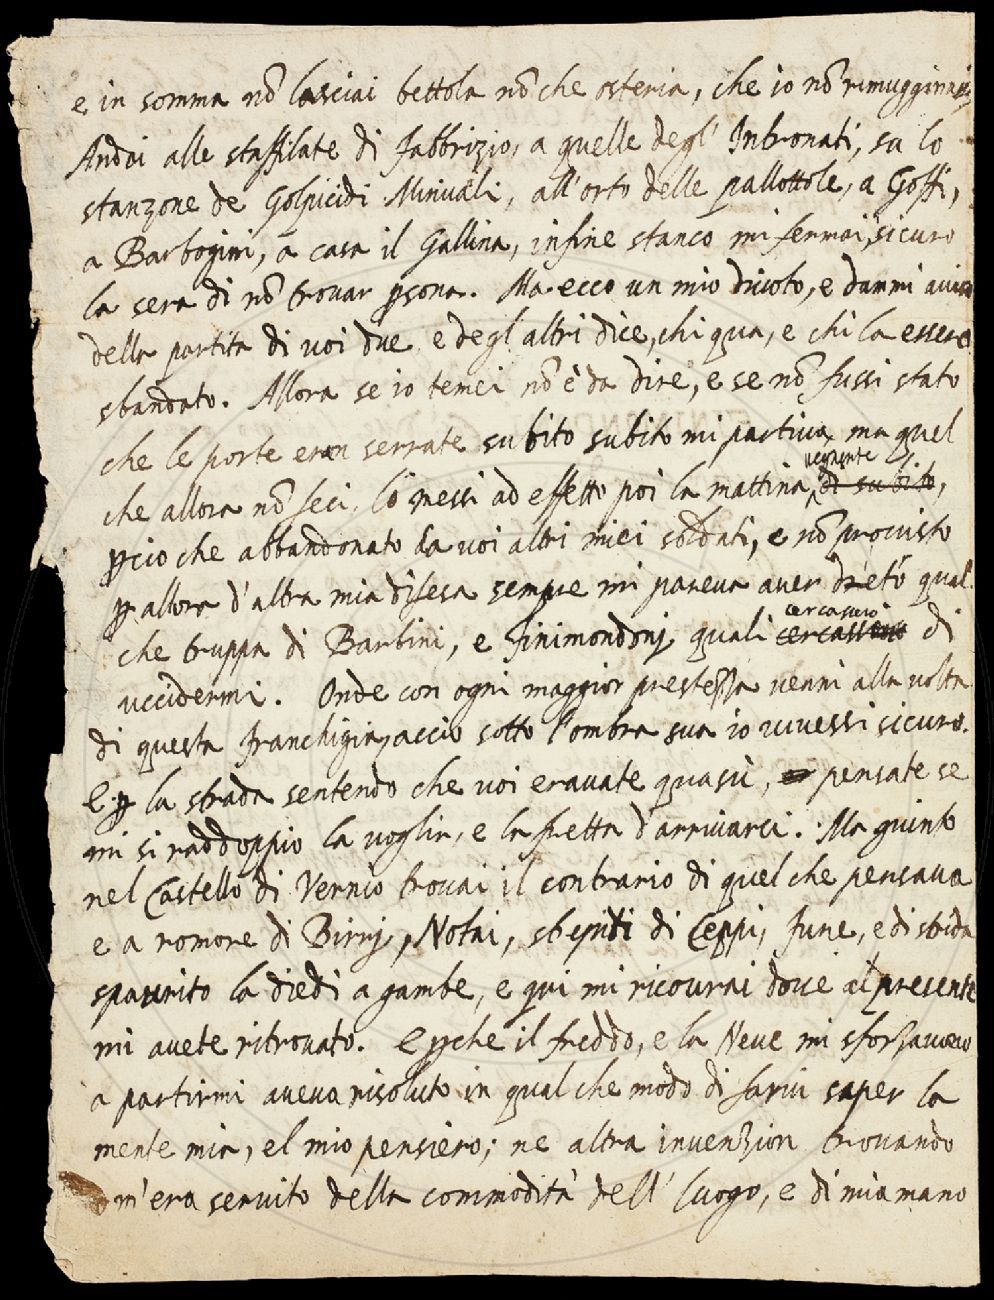 e in somma nō lasciai bettola nō che osteria, che io nō rimugginassi
Andai alle staffilate di Fabbrizio, a quelle degl' Intronati, su lo
stanzone de Golpicidi Minuali, all'orto delle pallottole, a Goffi,
a Barbogini, a casa il Gallina, infine stanco mi fermai, sicuro
la sera di nō trovar psona. Ma ecco un mio divoto, e dammi aviso
della partita di voi due e degl altri dice, chi qua, e chi la essere
sbandato. Allora se io temei nō è da dire, e se nō fussi stato
che le porte eran serrate subito subito mi partiva, ma quel
che allora nō feci, lo messi ad effetto poi la mattina vegnente di subito,
pcio che abbandonato da voi altri miei soldati, e nō provisto
p allora d'altra mia difesa sempre mi pareva aver drēto qual
che truppa di Barbini, e Finimondonj, quali cercassero di
uccidermi. Onde con ogni maggior prestezza venni alla volta
di questa franchigia, accio sotto l'ombra sua io vivessi sicuro.
E p la strada sentendo che voi eravate quasù, pensate se
mi si raddoppio la voglia, e la fretta d'arrivarci. Ma giunto
nel Castello di Vernio trovai il contrario di quel che pensava
e a romore di Birrj, Notai, strepiti di Ceppi, fune, e di strida
spaurito la diedi a gambe, e qui mi ricovrai dove al presente
mi avete ritrovato. E pche il freddo, e la Neve mi sforzavono
a partirmi aveva risoluto in qual che modo di farvi saper la
mente mia, el mio pensiero; ne altra invenzion trovando
m'era servito della commodità dell' luogo, e di mia mano